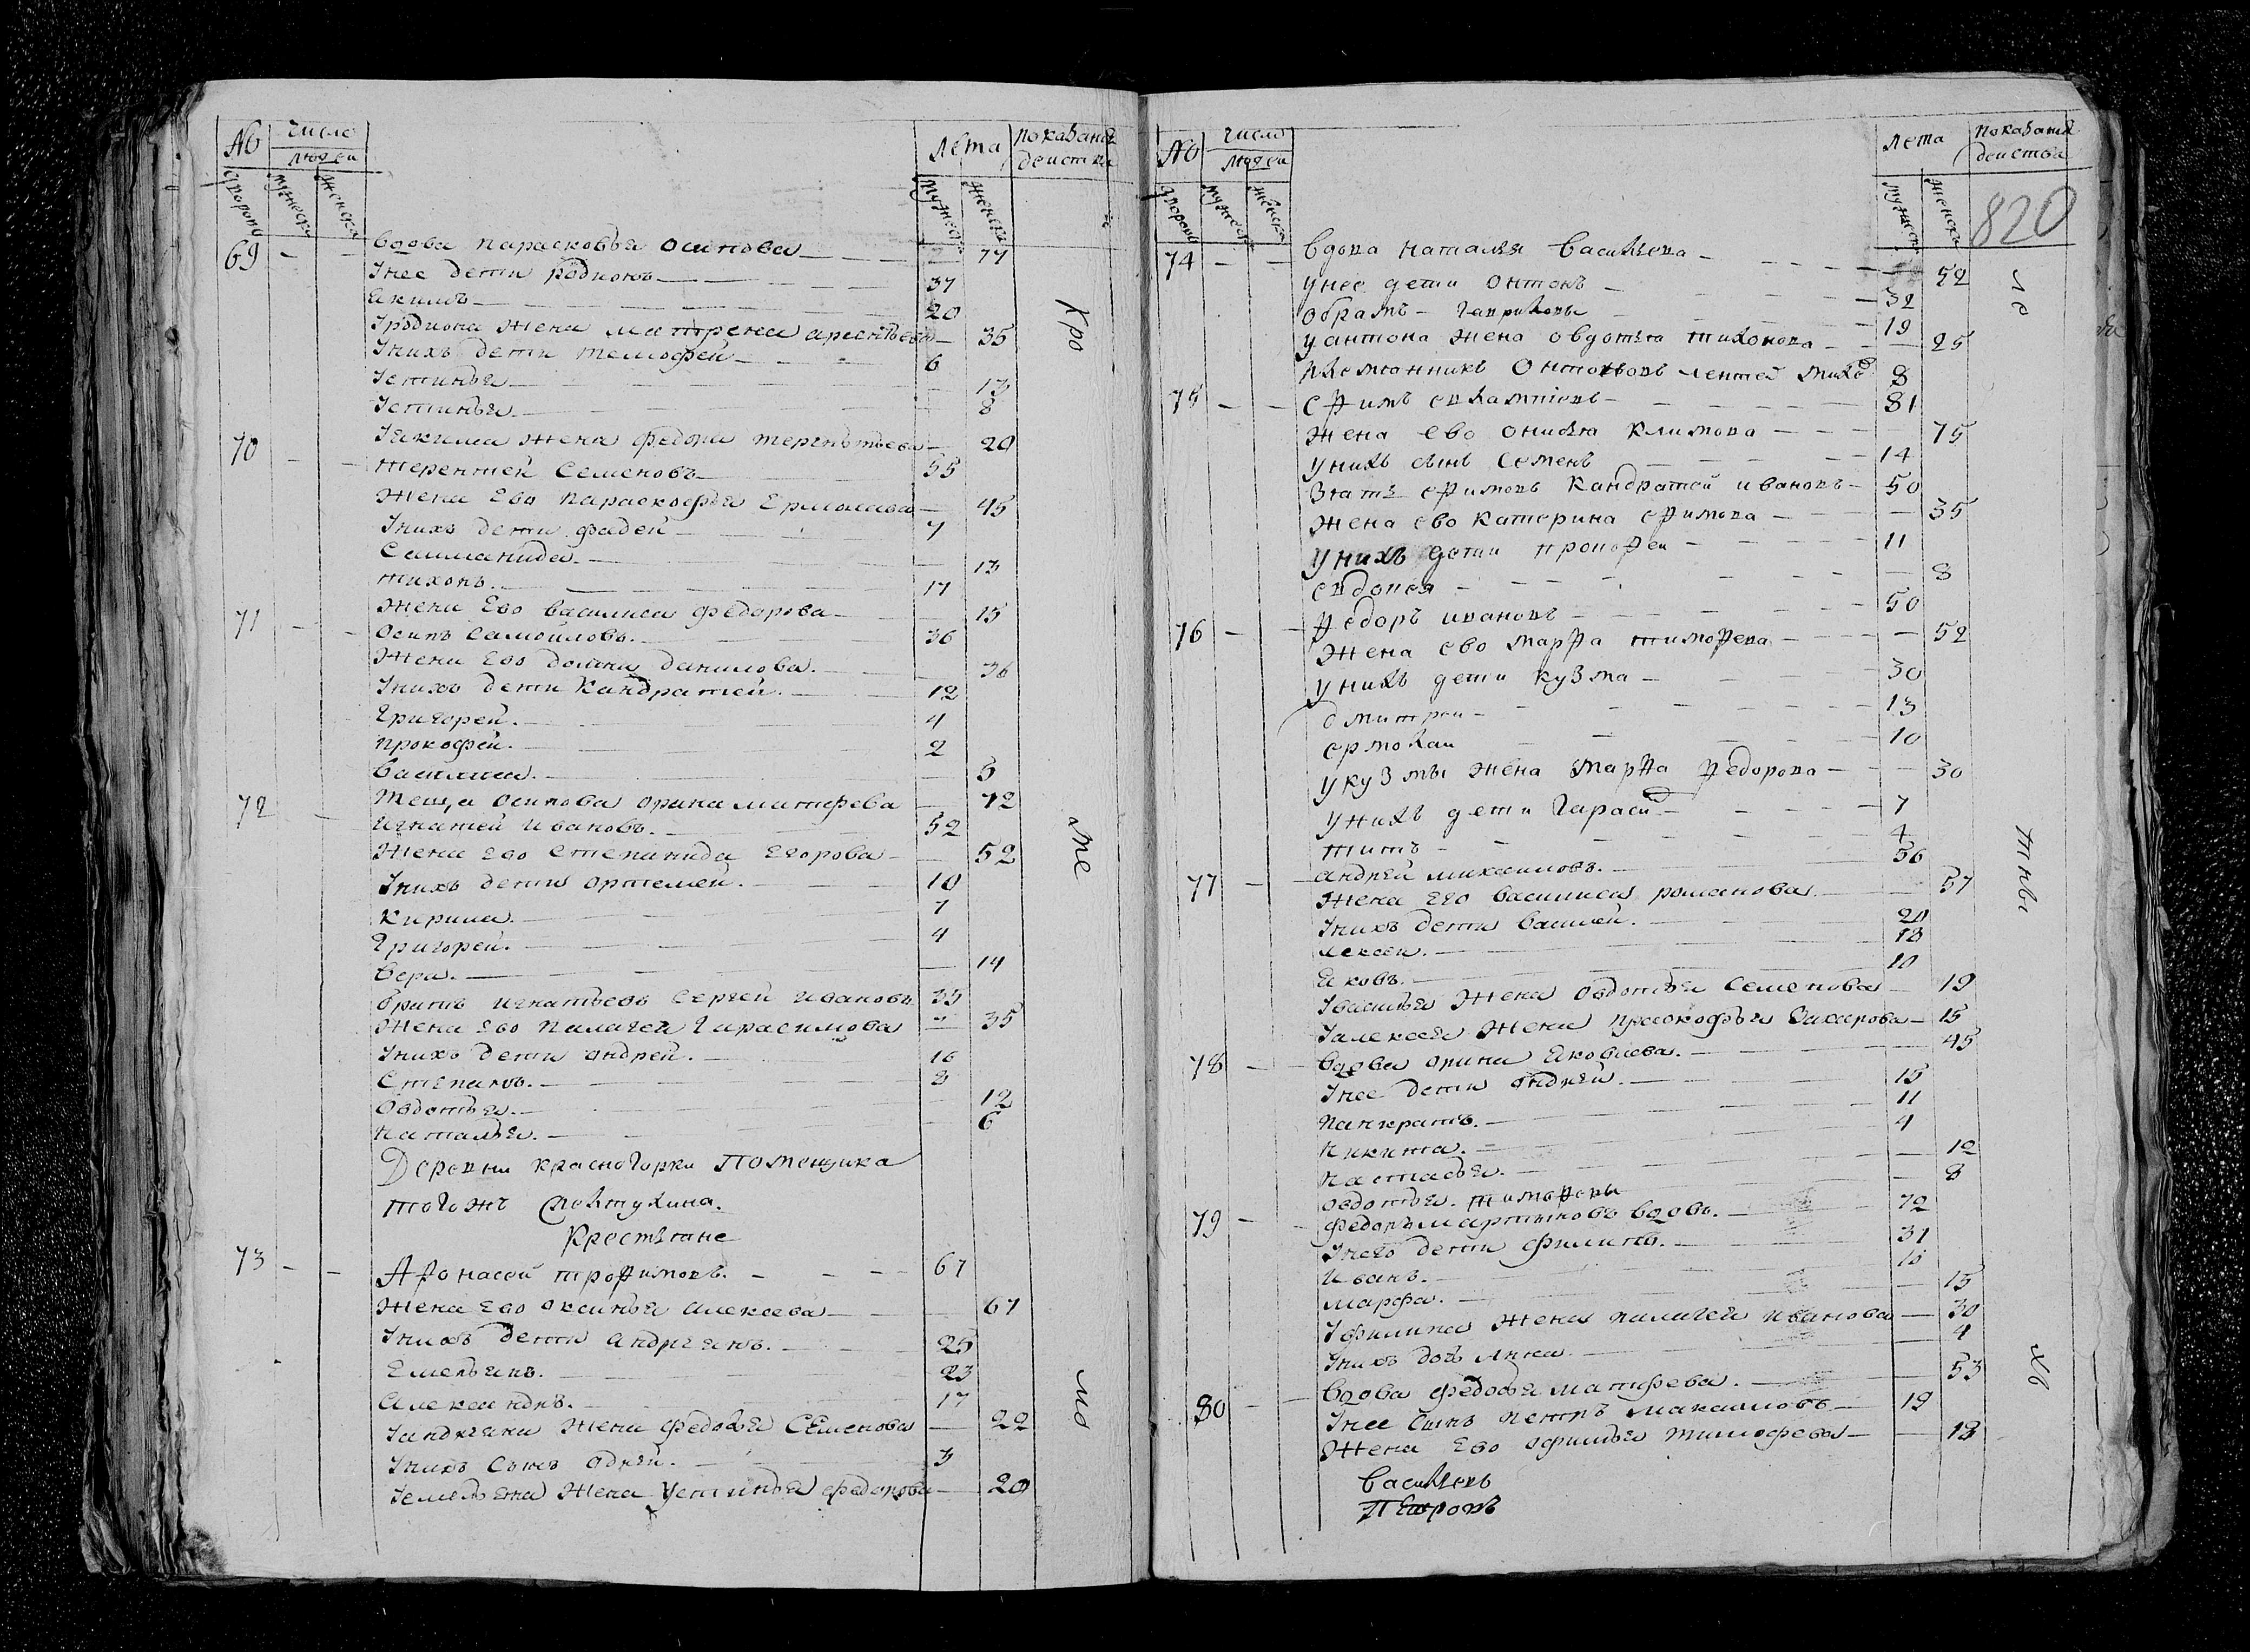 № число лета показаниѣ
людей действа
дворовъ мужеска женска мужеска женска
69 вдова парасковья осипова 77
Унее дети родионъ 37
акимъ 20
Уродиона жена матрена
Унихъ дети темофей 6
35
Устинья 13
Устинья 8
Уакима жена федора терентьева 20
70 терентей семеновъ 55
жена ево параскофья ермолаева 45
Унихъ дети фадей 7
Саломанида 13
тихонъ 17
жена ево василиса федорова 15
71 осипъ самойловъ 36
жена ево домна данилова 36
Унихъ дети кандратей 12
григорей 4
прокофей 2
василиса 5
теща осипова орина матфева 72
72 игнатей ивановъ 52
жена ево степанида егорова 52
Унихъ дети ортемей 10
кирила 7
григорей 4
вера 14
братъ игнатьевъ сергей ивановъ 35
жена ево палагея гарасимова 35
Унихъ дети андрей 16
степанъ 8
овдотья 12
наталья 6
Деревни красногорки помещика
тогожъ
крестьяне
73 Афонасей трофимовъ 67
жена ево оксинья алексева 67
Унихъ дети андреянъ 25
емельянъ 23
александръ 17
Уандреяна жена федосья семенова 22
Унихъ сынъ 3
Уемельяна жена устинья федорова 20
кро
ме
мо
№ число лета показания
людей действа
дворовъ мужеска женска мужеска женска 820
74 вдова наталья васильева 52
унее дети онтонъ 32
обрамъ гавриловы 19
уантона жена овдотья тихонова 25
племянникъ онтоновъ 8
75 ефимъ евлампиевъ 81
жена ево онисья климова 75
унихъ сынъ семенъ 14
зять ефимовъ кандратей ивановъ 50
жена ево катерина ефимова 35
унихъ дети прокофей 11
евдокея 8
76 федоръ ивановъ 50
жена ево марфа тимофева 52
унихъ дети кузма 30
дмитрей 13
ермолай 10
укузмы жена марфа федорова 30
унихъ дети гараси 7
титъ 4
77 андрей михаиловъ 56
жена ево василиса романова 57
Унихъ дети василей 20
алексей 18
яковъ 10
Увасилья жена овдотья семенова 19
Уалексея жена праскофья захарова 15
78 вдова орина яковлева 45
Унее дети андрей 15
панкратъ 11
никита 4
настасья 12
овдотья тимофевы 8
79 федоръ мартыновъ вдовъ 72
Унего дети филипъ 31
иванъ 10
марфа 15
Уфилипа жена палагея иванова 30
Унихъ дочь анна 4
80 вдова федосья матфева 53
Унее сынъ петръ 19
жена ево офимья тимофева 18
васильевъ
петровъ
ле
тны
хъ